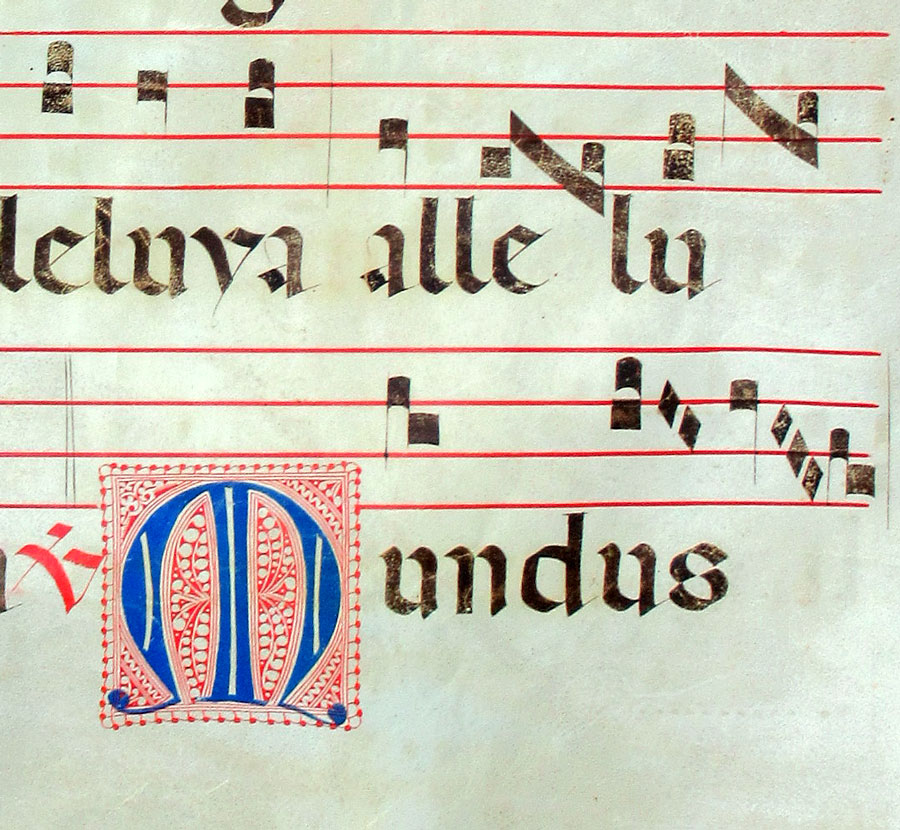 leluya alle lu
℣ Mundus